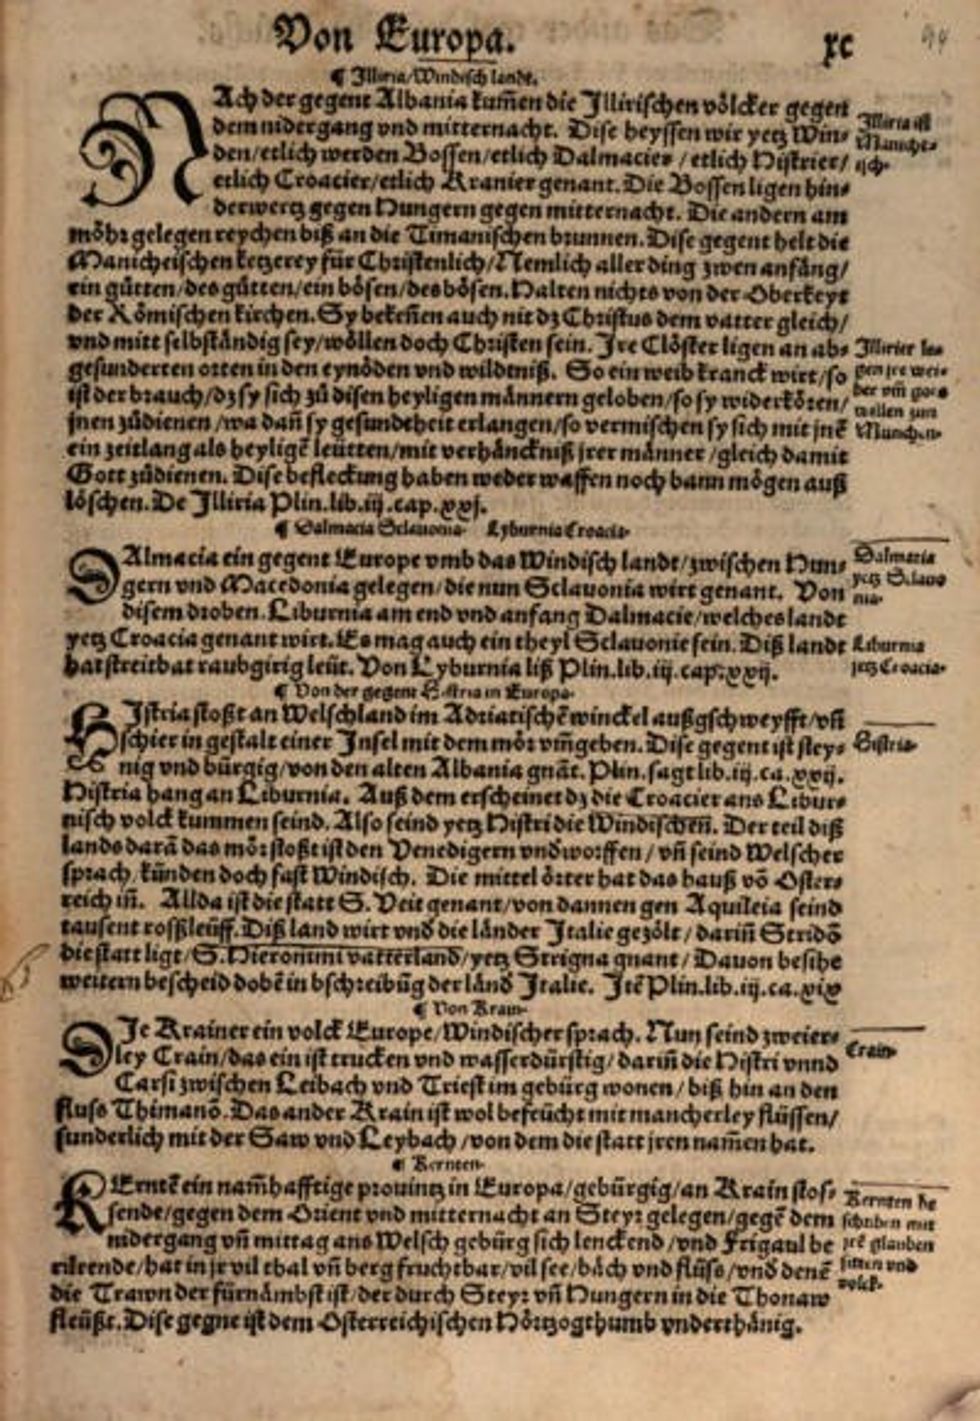 Von Europa.
xc
94
¶ Illiria/Windisch landt.
NAch der gegent Albania kum̃en die Illirischen völcker gegen
dem nidergang vnd mitternacht. Dise heyssen wir yetz Win-
den/etlich werden Bossen/etlich Dalmacier/etlich Histrier/
etlich Croacier/etlich Kranier genant. Die Bossen ligen hin-
derwertz gegen Hungern gegen mitternacht. Die andern am
möhr gelegen reychen biß an die Timanischen brunnen. Dise gegent helt die
Manicheischen ketzerey für Christenlich/Nemlich aller ding zwen anfäng/
ein gütten/des gütten/ein bösen/des bösen. Halten nichts von der Oberkeyt
der Römischen kirchen. Sy bekeñen auch nit dz Christus dem vatter gleich/
vnd mitt selbständig sey/wöllen doch Christen sein. Ire Clöster ligen an ab-
gesunderten orten in den eynöden vnd wildtniß. So ein weib kranck wirt/so
ist der brauch/dz sy sich zů disen heyligen männern geloben/so sy widerkören/
jnen zůdienen/wa dañ sy gesundtheit erlangen/so vermischen sy sich mit jnẽ
ein zeitlang als heyligẽ leütten/mit verhänckniß jrer männer/gleich damit
Gott zůdienen. Dise befleckung haben weder waffen noch bann mögen auß
löschen. De Illiria Plin.lib.iij.cap.xxj.
Illiria ist
Maniche-
isch.
Illirier le-
gen jre wei-
ber vm̃ gots
willen zum
München.
¶ Dalmacia Sclauonia. Lyburnia Croacia.
DAlmacia ein gegent Europe vmb das Windisch landt/zwischen Hun-
gern vnd Macedonia gelegen/die nun Sclauonia wirt genant. Von
disem droben. Liburnia am end vnd anfang Dalmacie/welches landt
yetz Croacia genant wirt. Es mag auch ein theyl Sclauonie sein. Diß landt
hat streitbat raubgirig leüt. Von Lyburnia liß Plin.lib.iij.cap.xxij.
Dalmatia
yetz Sclauo
nia.
Liburnia
jetz Croacia.
¶ Von der gegent Histria in Europa.
HIstria stoßt an Welschland im Adriatischẽ winckel außgschweyfft/vñ
schier in gestalt einer Insel mit dem mör vm̃geben. Dise gegent ist stey-
nig vnd bürgig/von den alten Albania gnãt. Plin. sagt lib.iij.ca.xxij.
Histria hang an Liburnia. Auß dem erscheinet dz die Croacier ans Libur-
nisch volck kummen seind. Also seind yetz Histri die Windischeñ. Der teil diß
lands darã das mör stoßt ist den Venedigern vndworffen/vñ seind Welscher
sprach/künden doch fast Windisch. Die mittel örter hat das hauß võ Oster-
reich iñ. Allda ist die statt S. Veit genant/von dannen gen Aquileia seind
tausent roßleüff. Diß land wirt vnd̃ die länder Italie gezölt/dariñ Stridõ
die statt ligt/S. Hieronimi vatterland/yetz Strigna gnant/Davon besihe
weitern bescheid dobẽ in bschreibũg der länd̃ Italie. Itẽ Plin.lib.iij.ca.xix
Histria.
¶ Von Krain.
DIe Krainer ein volck Europe/Windischer sprach. Nun seind zweier-
ley Crain/das ein ist trucken vnd wasserdürstig/dariñ die Histri vnnd
Carsi zwischen Leibach vnd Triest im gebürg wonen/biß hin an den
fluss Thimanõ. Das ander Krain ist wol befeücht mit mancherley flüssen/
sunderlich mit der Saw vnd Leybach/von dem die statt jren nam̃en hat.
Crain.
¶ Kernten.
KErntẽ ein nam̃hafftige prouintz in Europa/gebürgig/an Krain stos-
sende/gegen dem Orient vnd mitternacht an Steyr gelegen/gegẽ dem
nidergang vñ mittag ans Welsch gebürg sich lenckend/vnd Frigaul be
rürende/hat in jr vil thal vñ berg fruchtbar/vil see/bäch vnd flüss/vnd̃ denẽ
die Trawn der fürnämbst ist/der durch Steyr vñ Hungern in die Thonaw
fleüßt. Dise gegne ist dem Osterreichischen Hörtzogthumb vnderthänig.
Kernten be
schriben mit
jrẽ glauben
sitten vnd
volck.